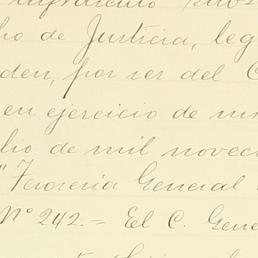 ho de Justicia, leg
den, por ser del C
en ejercicio de
lio de mil novec
"Tesoreria General
Nº 242.= El C. Gene